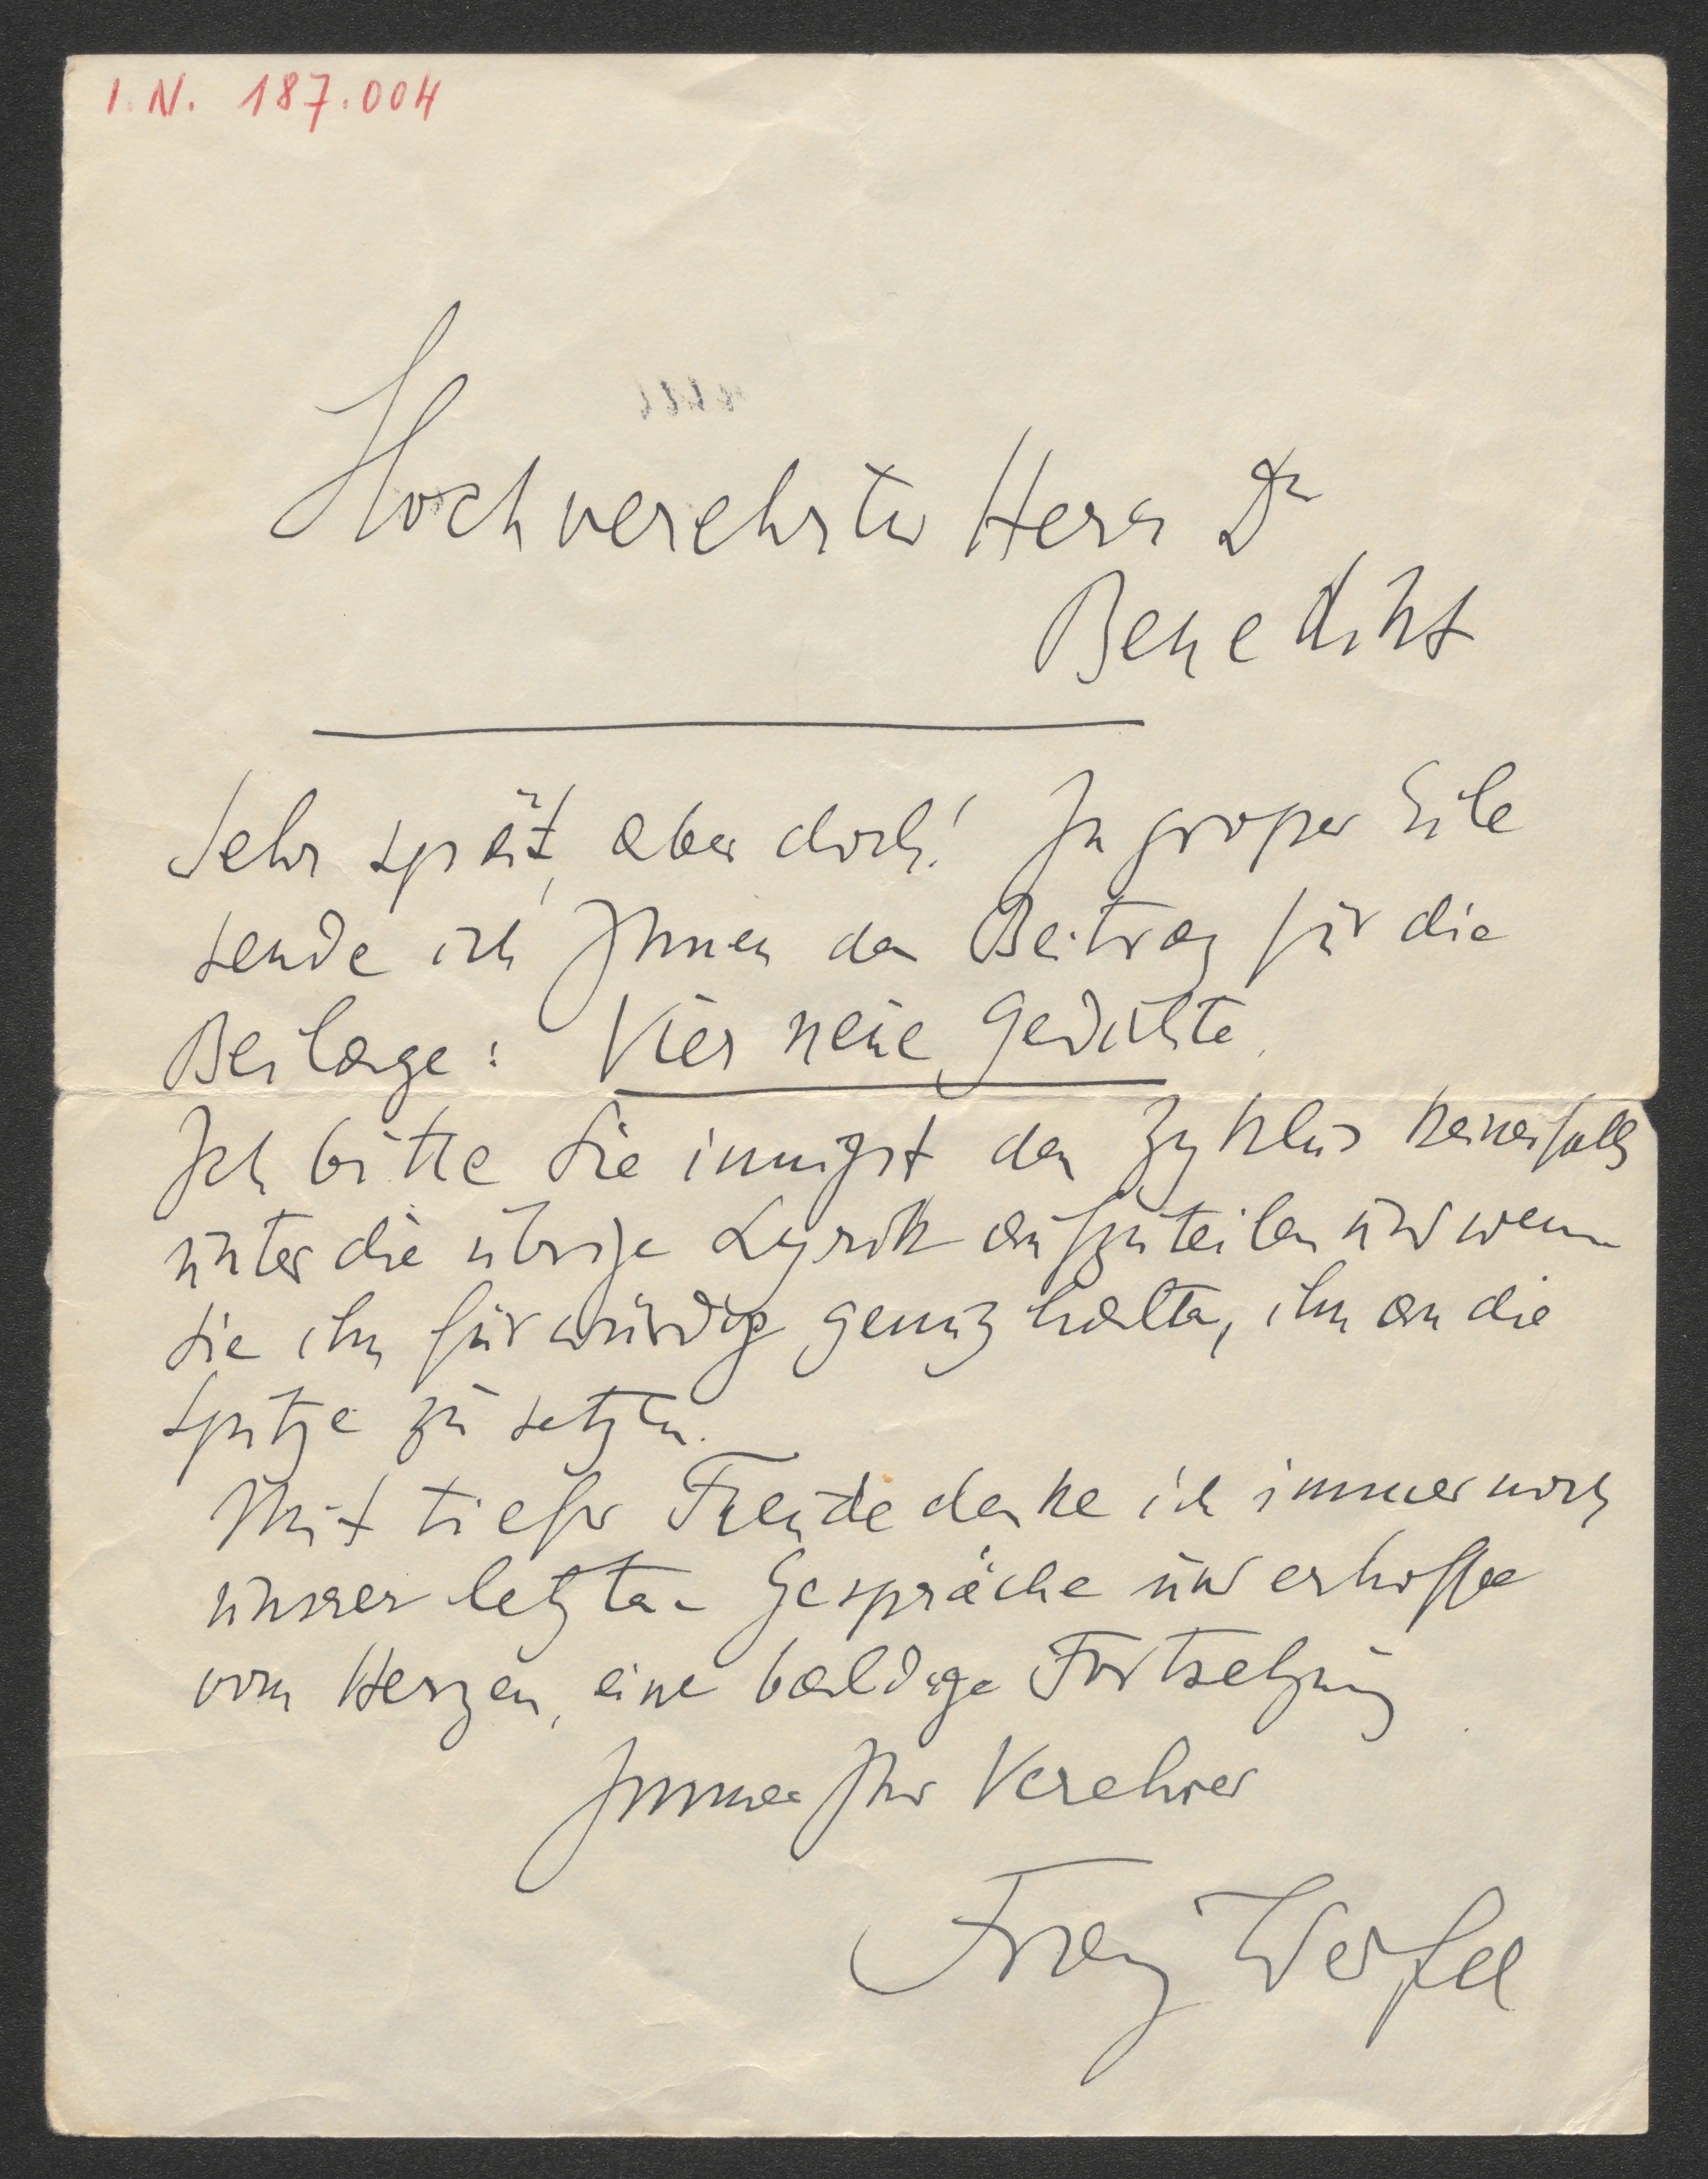 I.N. 187.004
Hochverehrter Herr Dr
Benedikt
Sehr spät, aber doch! In großer Eile
sende ich Ihnen den Beitrag für die
Beilage: Vier neue Gedichte.
Ich bitte Sie innigst den Zyklus keinesfalls
unter die übrige Lyrik aufzuteilen und wenn
Sie ihn für würdig genug halten, ihn an die
Spitze zu setzen.
Mit tiefer Freude denke ich immer noch
unsrer letzten Gespräche und erhoffe
vom Herzen, eine baldige Fortsetzung.
Immer Ihr Verehrer
Franz Werfel